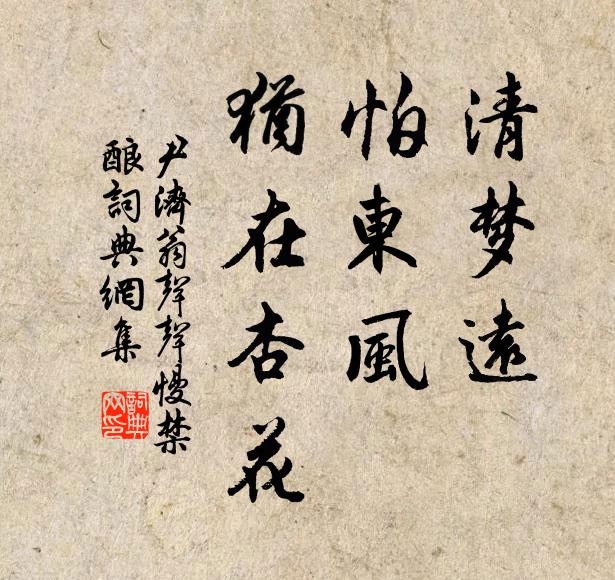 清梦遠
怕東風
猶在杏花
尹濟翁聲聲慢禁
酿詞典網集
詞典
网印